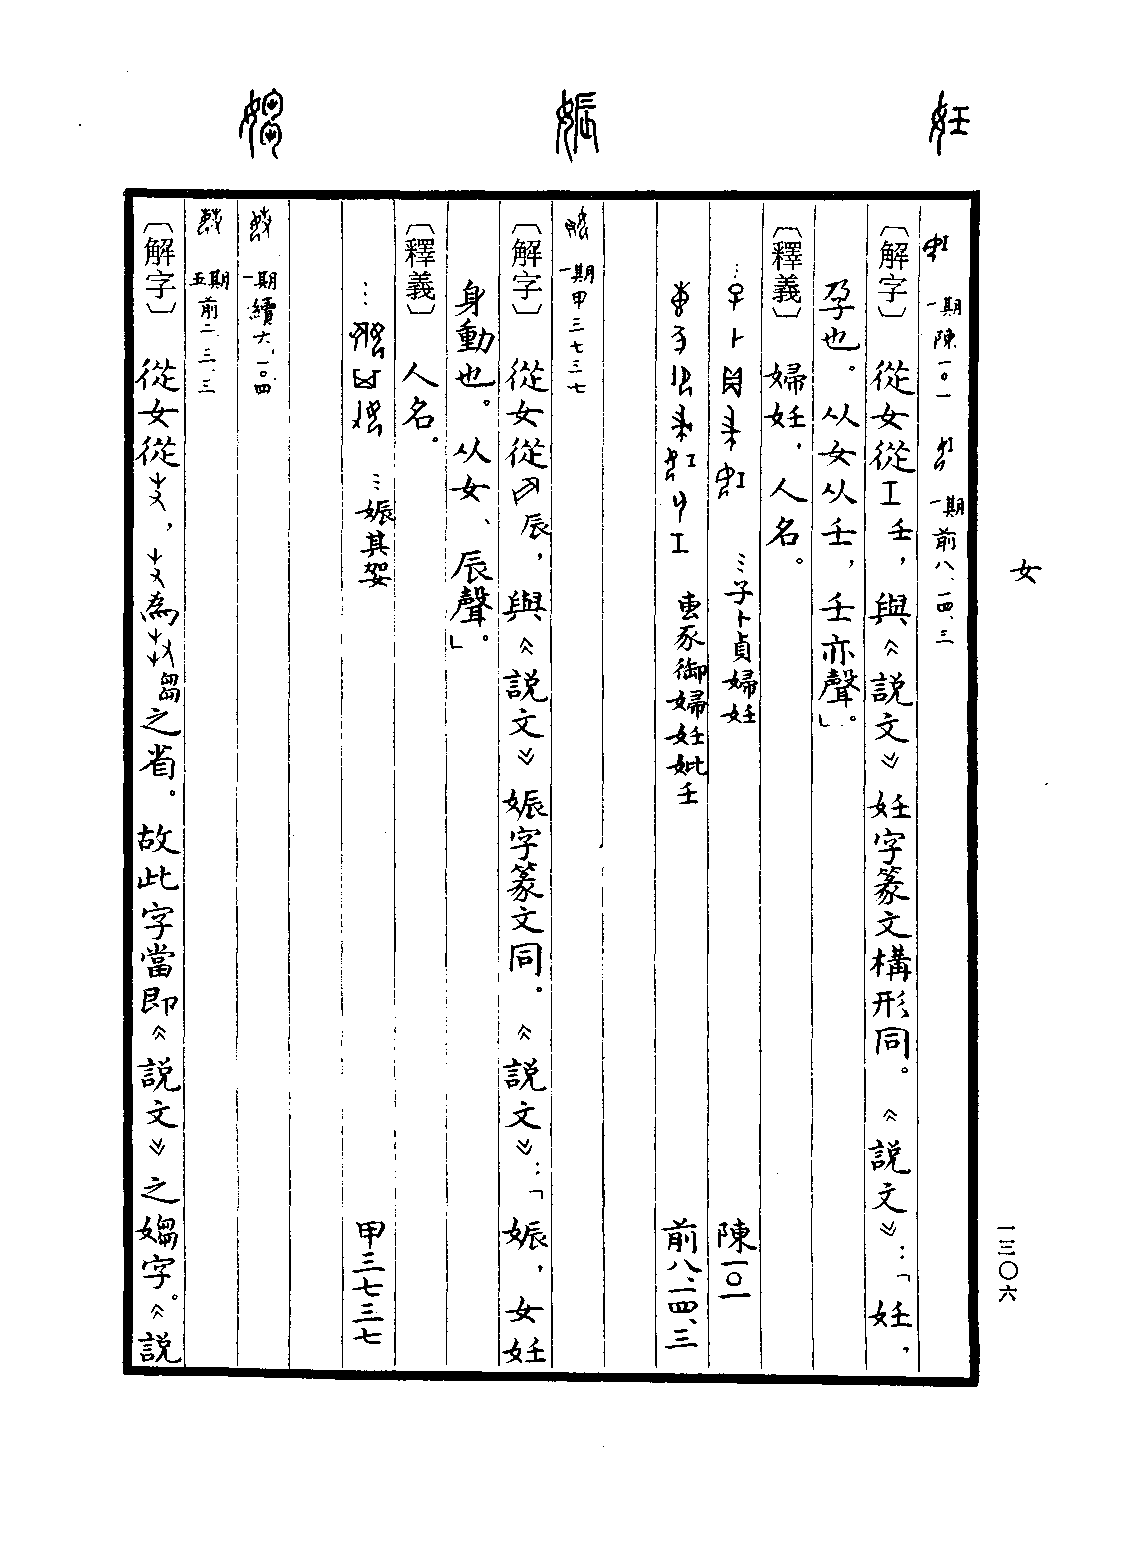 女
一三〇六
妊
一期 陳一〇一 一期 前八.一四.三
〔解字〕 從女從壬,與《說文》妊字篆文構形同。《說文》:「妊,
孕也。从女从壬,壬亦聲」。
〔釋義〕 婦妊,人名。
…子卜貞婦妊 陳一〇一
叀豕御婦妊妣壬 前八.一四.三
娠
一期甲三七三七
〔解字〕 從女從辰,與《說文》娠字篆文同。《說文》:「娠,女妊
身動也。从女、辰聲。」
〔釋義〕 人名。
…娠其㚸 甲三七三七
媰
一期 續六.一〇.四
五期 前二.三.三
〔解字〕 從女從,為芻之省。故此字當即《說文》之媰字。《說